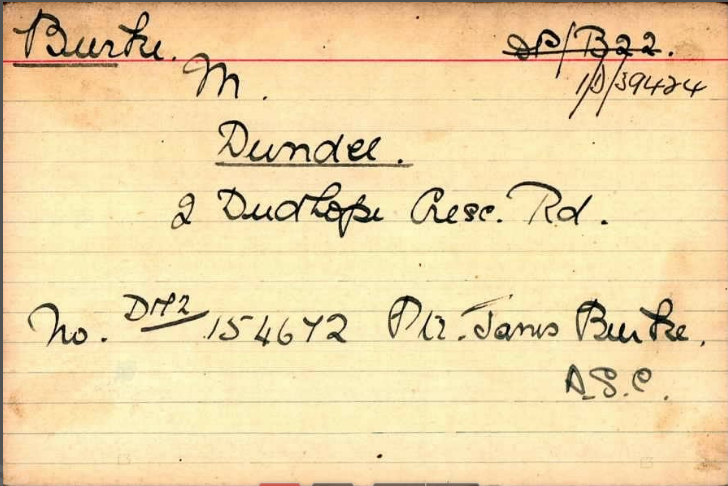 Burke. DP/B22.
M. 1/D/39424
Dundee.
2 Dudhope Cresc. Rd.
No. DM2/154672 Pte. James Burke.
A.S.C.